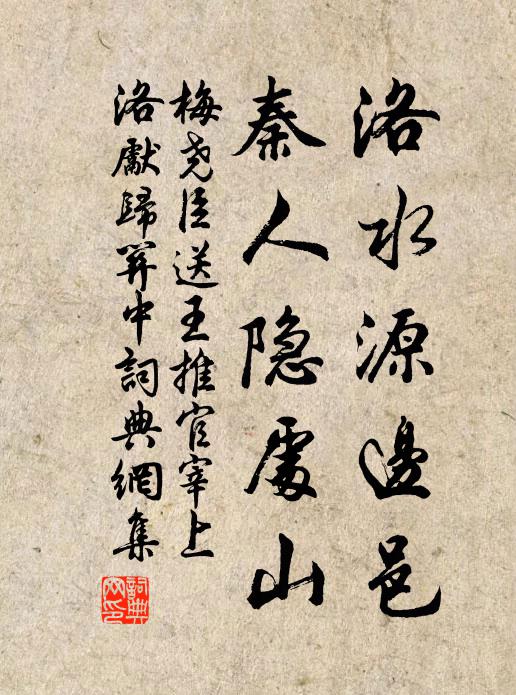 洛水源邊邑
秦人隐處山
梅尧臣送王推官宰上
洛獻歸关中詞典網集
詞典網印